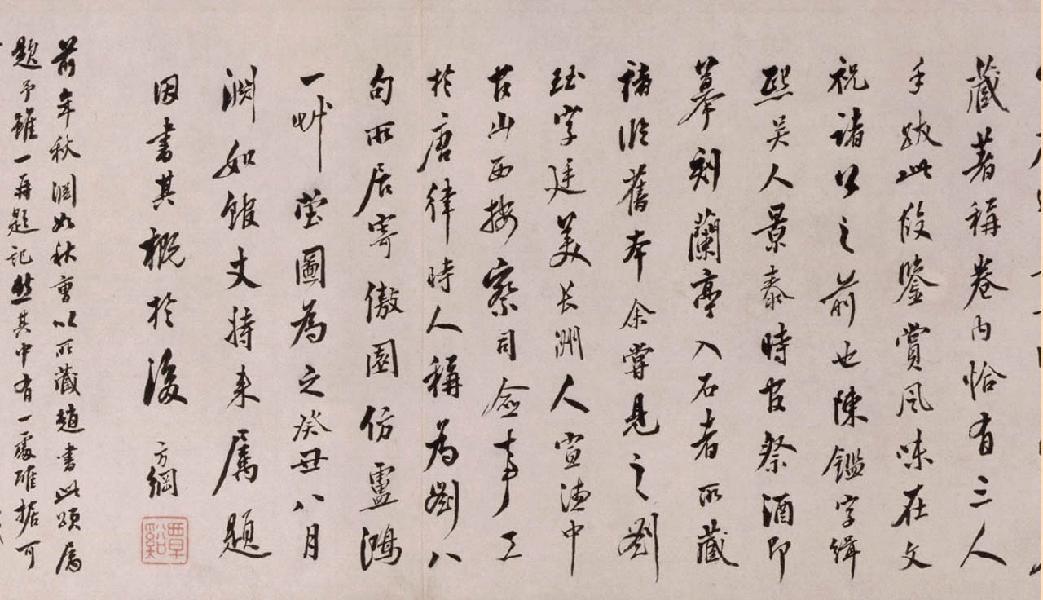 藏著稱卷内恰有三人
手跋此段鑒賞風味在文
祝諸公之前也陳鑑字緝
熙吳人景泰時官祭酒即
摹刻蘭亭入石者所藏
褚臨舊本余嘗見之劉
珏字廷美長洲人宣德中
官山西按察司僉事工
於唐律時人稱為劉八
句所居寄傲園仿盧鴻
一艸堂圖為之癸丑八月
淵如館丈持来屬題
因書其概於後 方綱
覃谿
前年秋淵如秋重以所藏趙書此頌屬
題予雖一再題記然其中有一處確据可